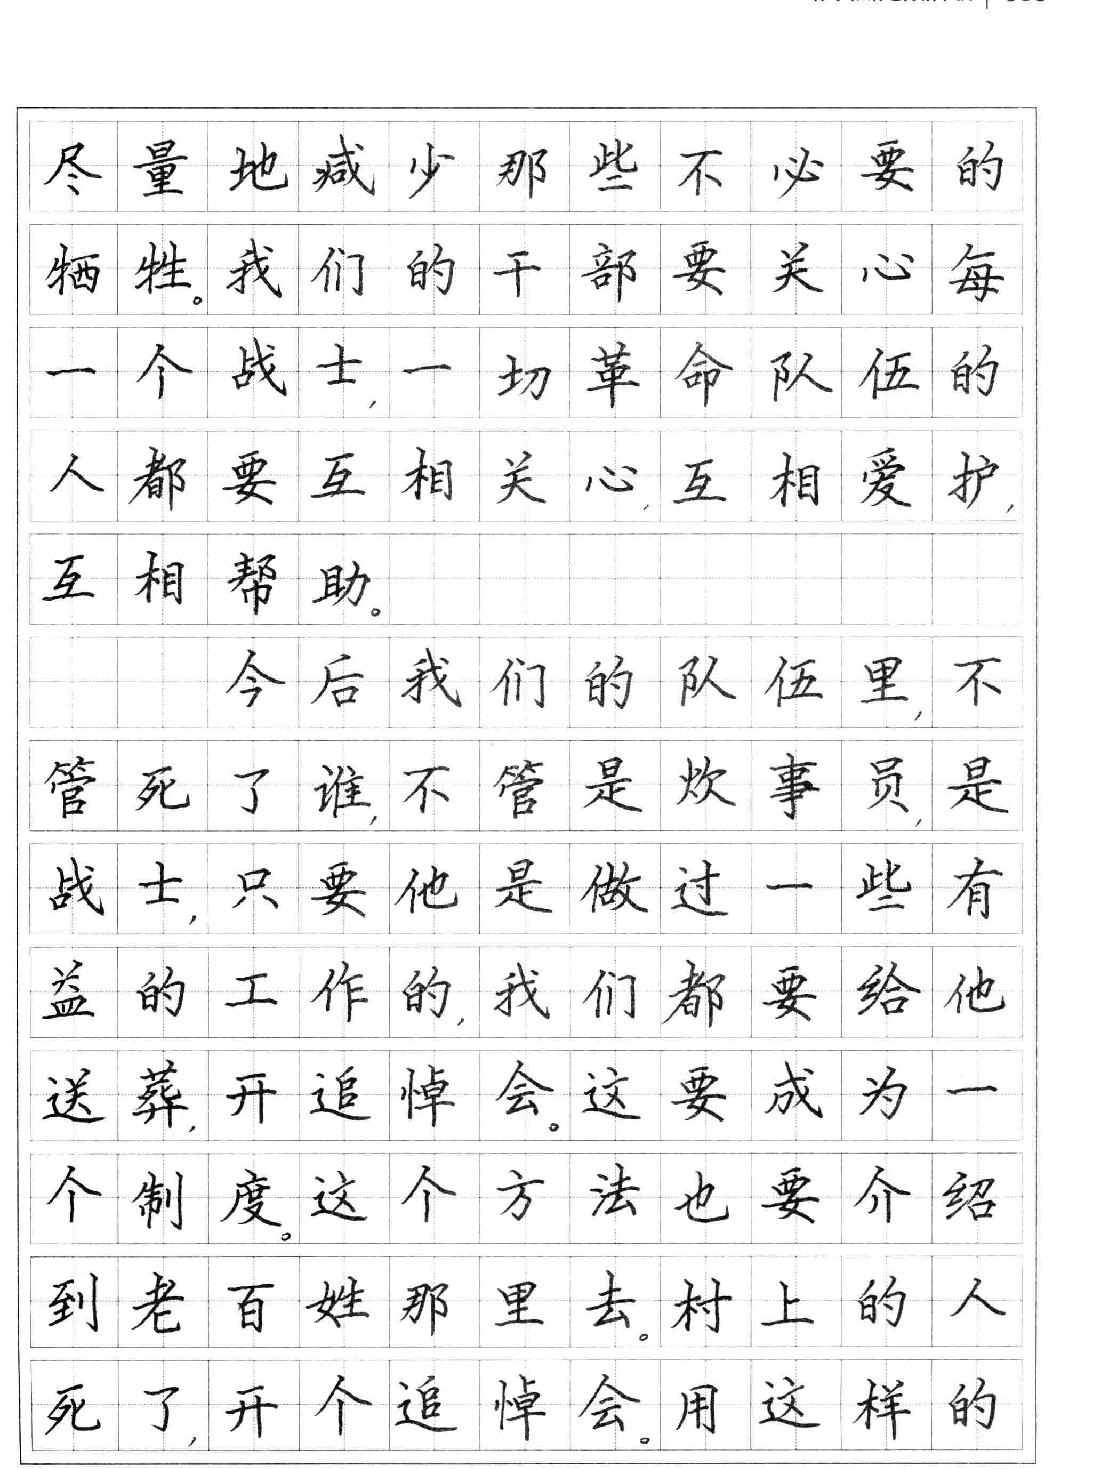 尽量地减少那些不必要的
牺牲。我们的干部要关心每
一个战士,一切革命队伍的
人都要互相关心,互相爱护,
互相帮助。
今后我们的队伍里,不
管死了谁,不管是炊事员,是
战士,只要他是做过一些有
益的工作的,我们都要给他
送葬,开追悼会。这要成为一
个制度。这个方法也要介绍
到老百姓那里去。村上的人
死了,开个追悼会。用这样的